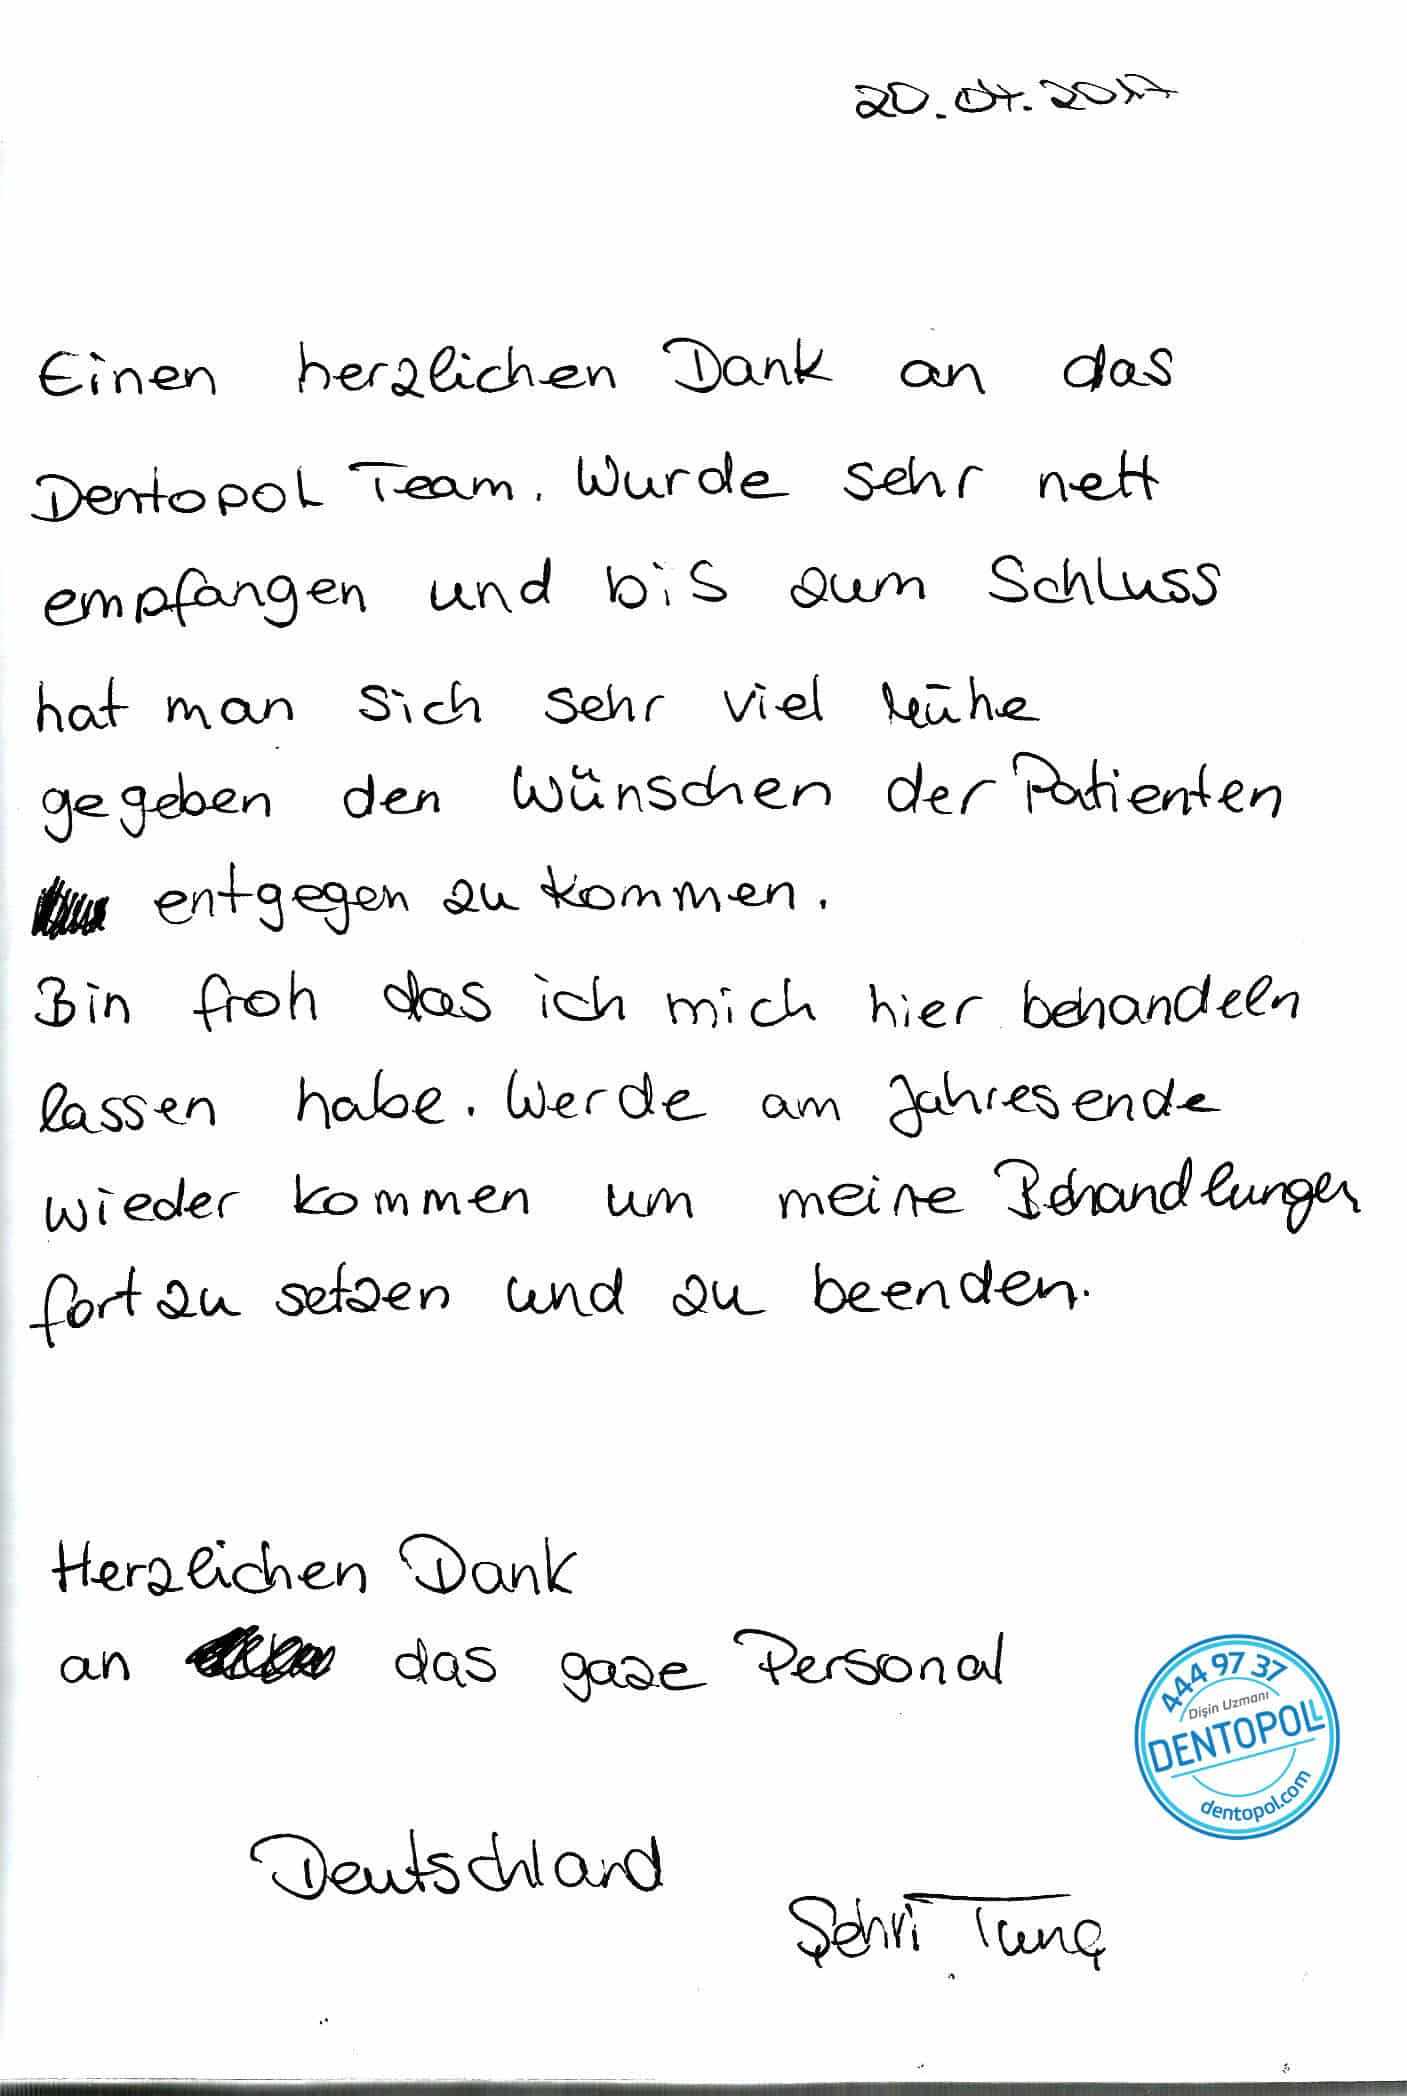 20.04.2017
Einen herzlichen Dank an das
Dentopol Team. Wurde sehr nett
empfangen und bis zum Schluss
hat man sich sehr viel Mühe
gegeben den Wünschen der Patienten
entgegen zu kommen.
Bin froh das ich mich hier behandeln
lassen habe. Werde am Jahresende
wieder kommen um meine Behandlungen
fort zu setzen und zu beenden.
Herzlichen Dank
an das gaze Personal
444 97 37
Dişin Uzmanı
DENTOPOL
dentopol.com
Deutschland
Şehri Tunç